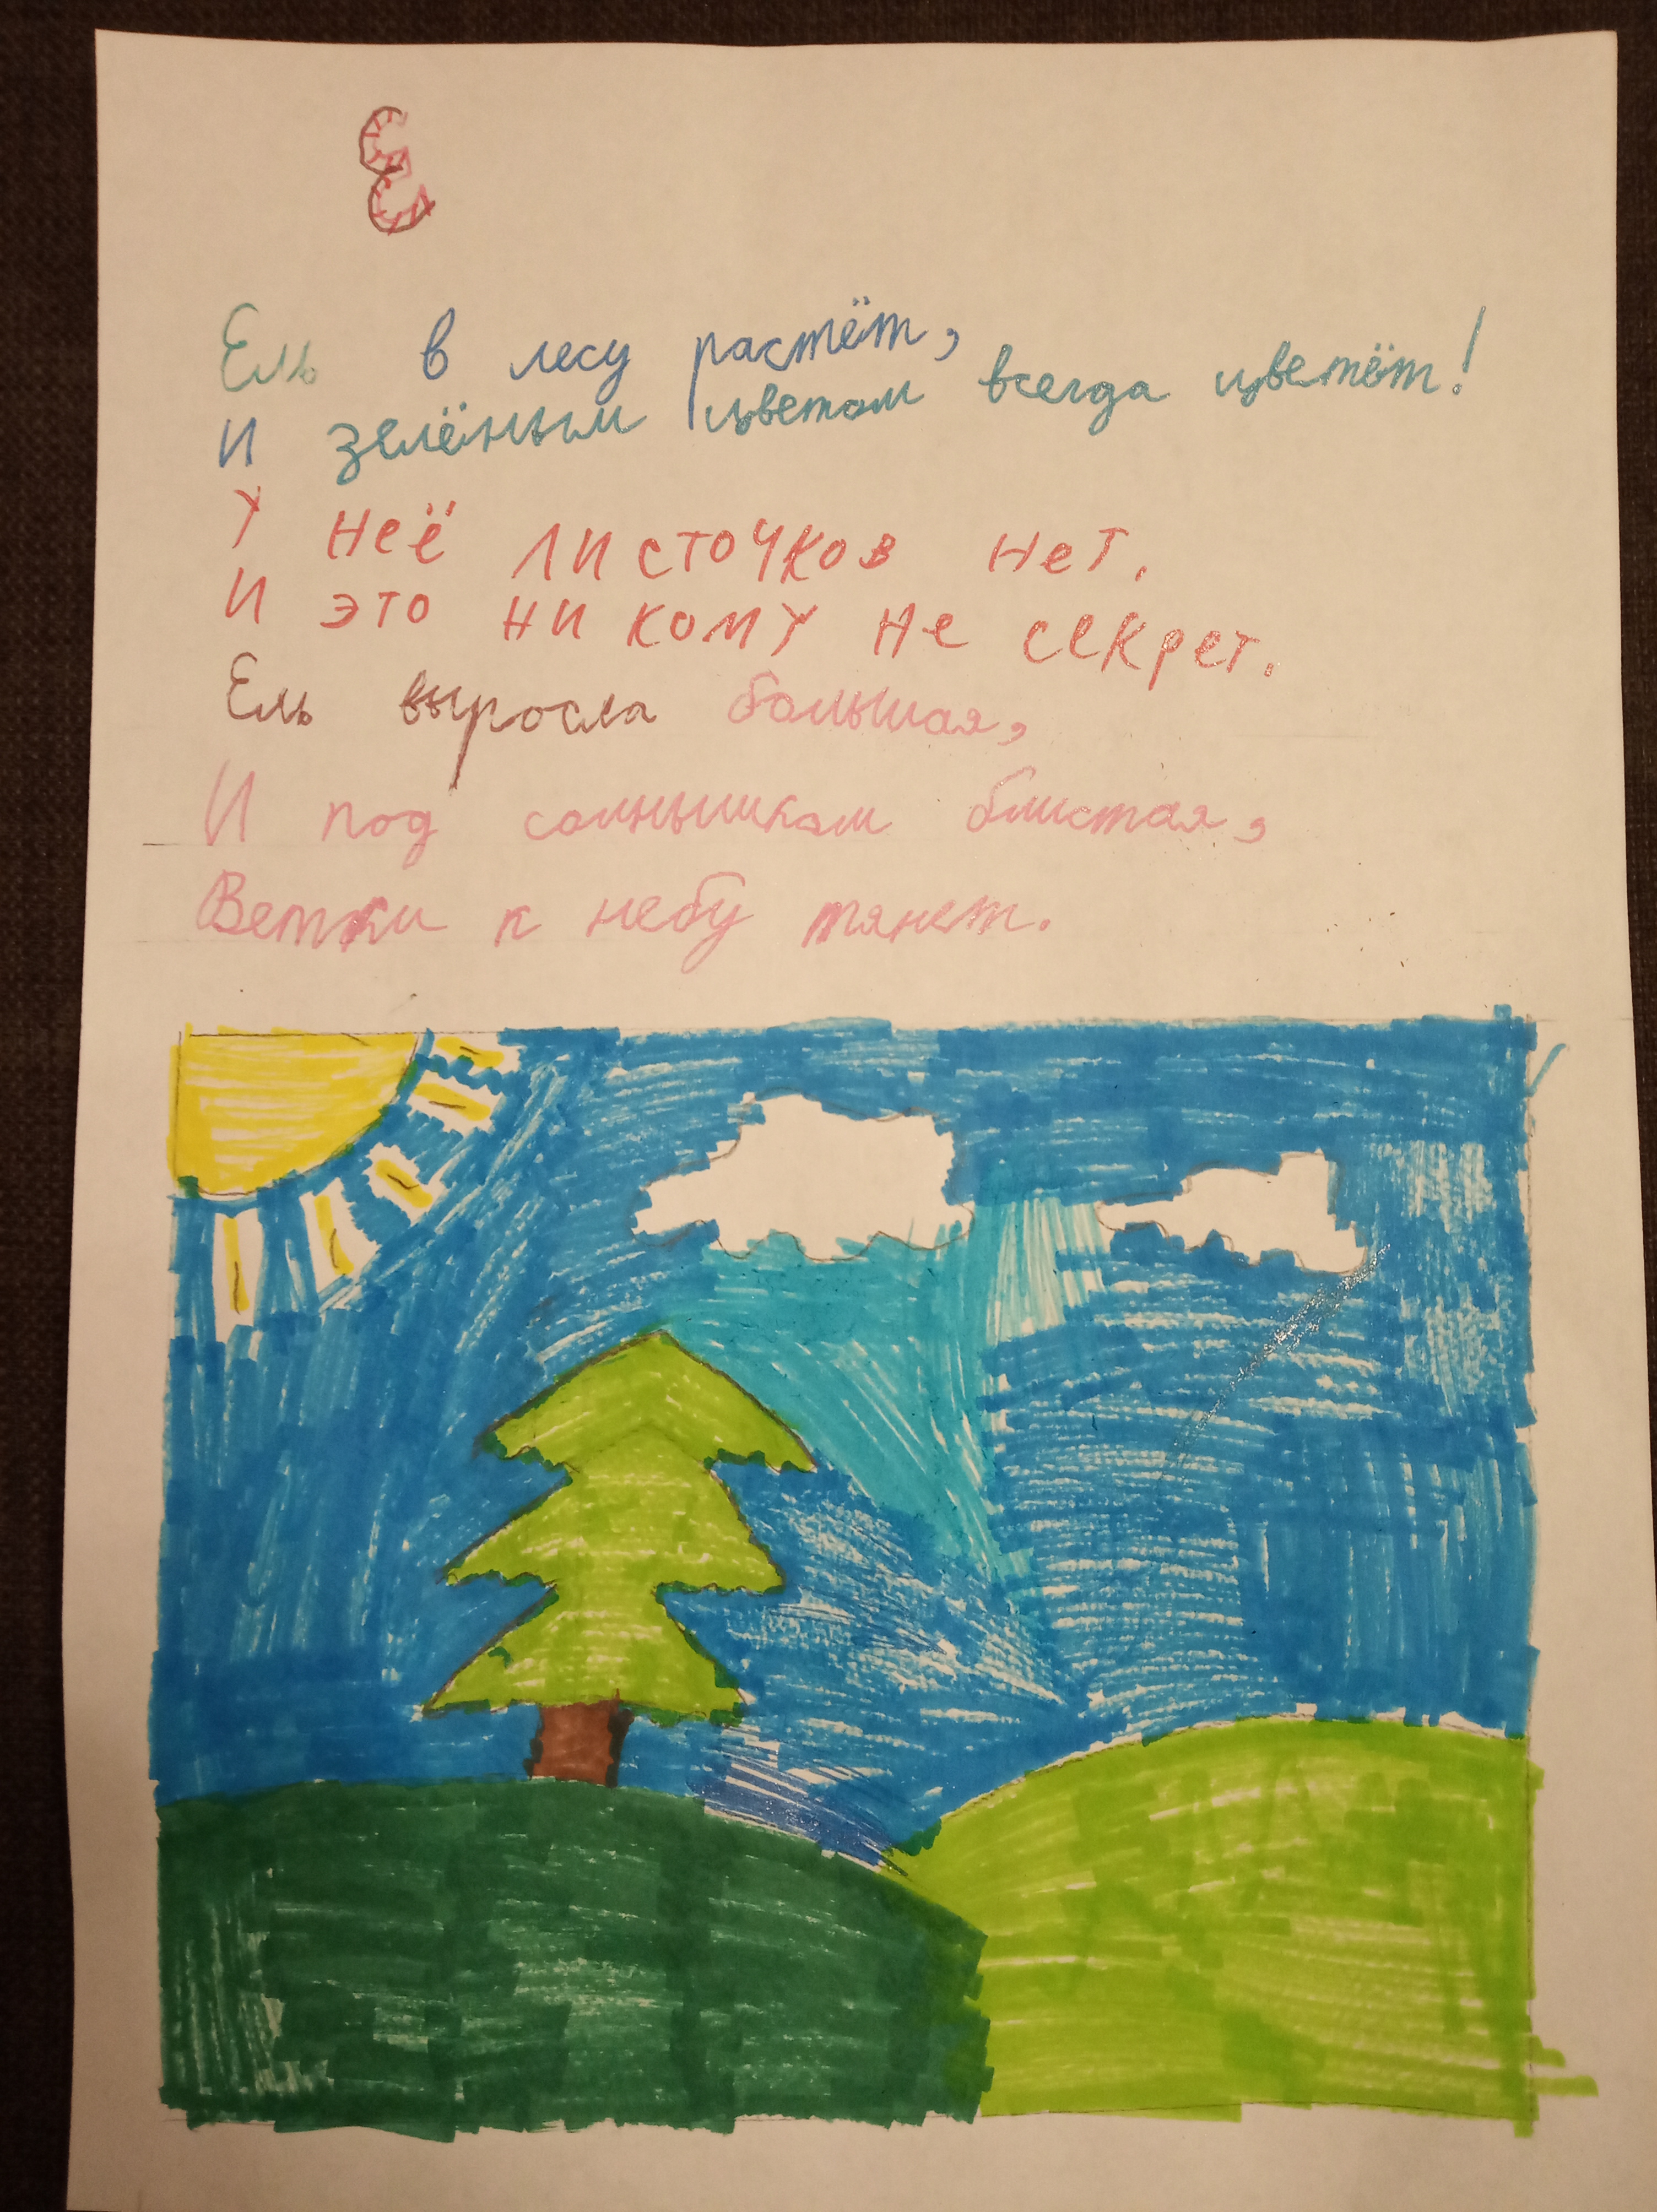 Е
Ель в лесу растёт,
И зелёным цветом всегда цветёт!
У неё листочков нет.
И это ни кому не секрет.
Ель выросла большая,
И под солнышком блистая,
Ветки к небу тянет.